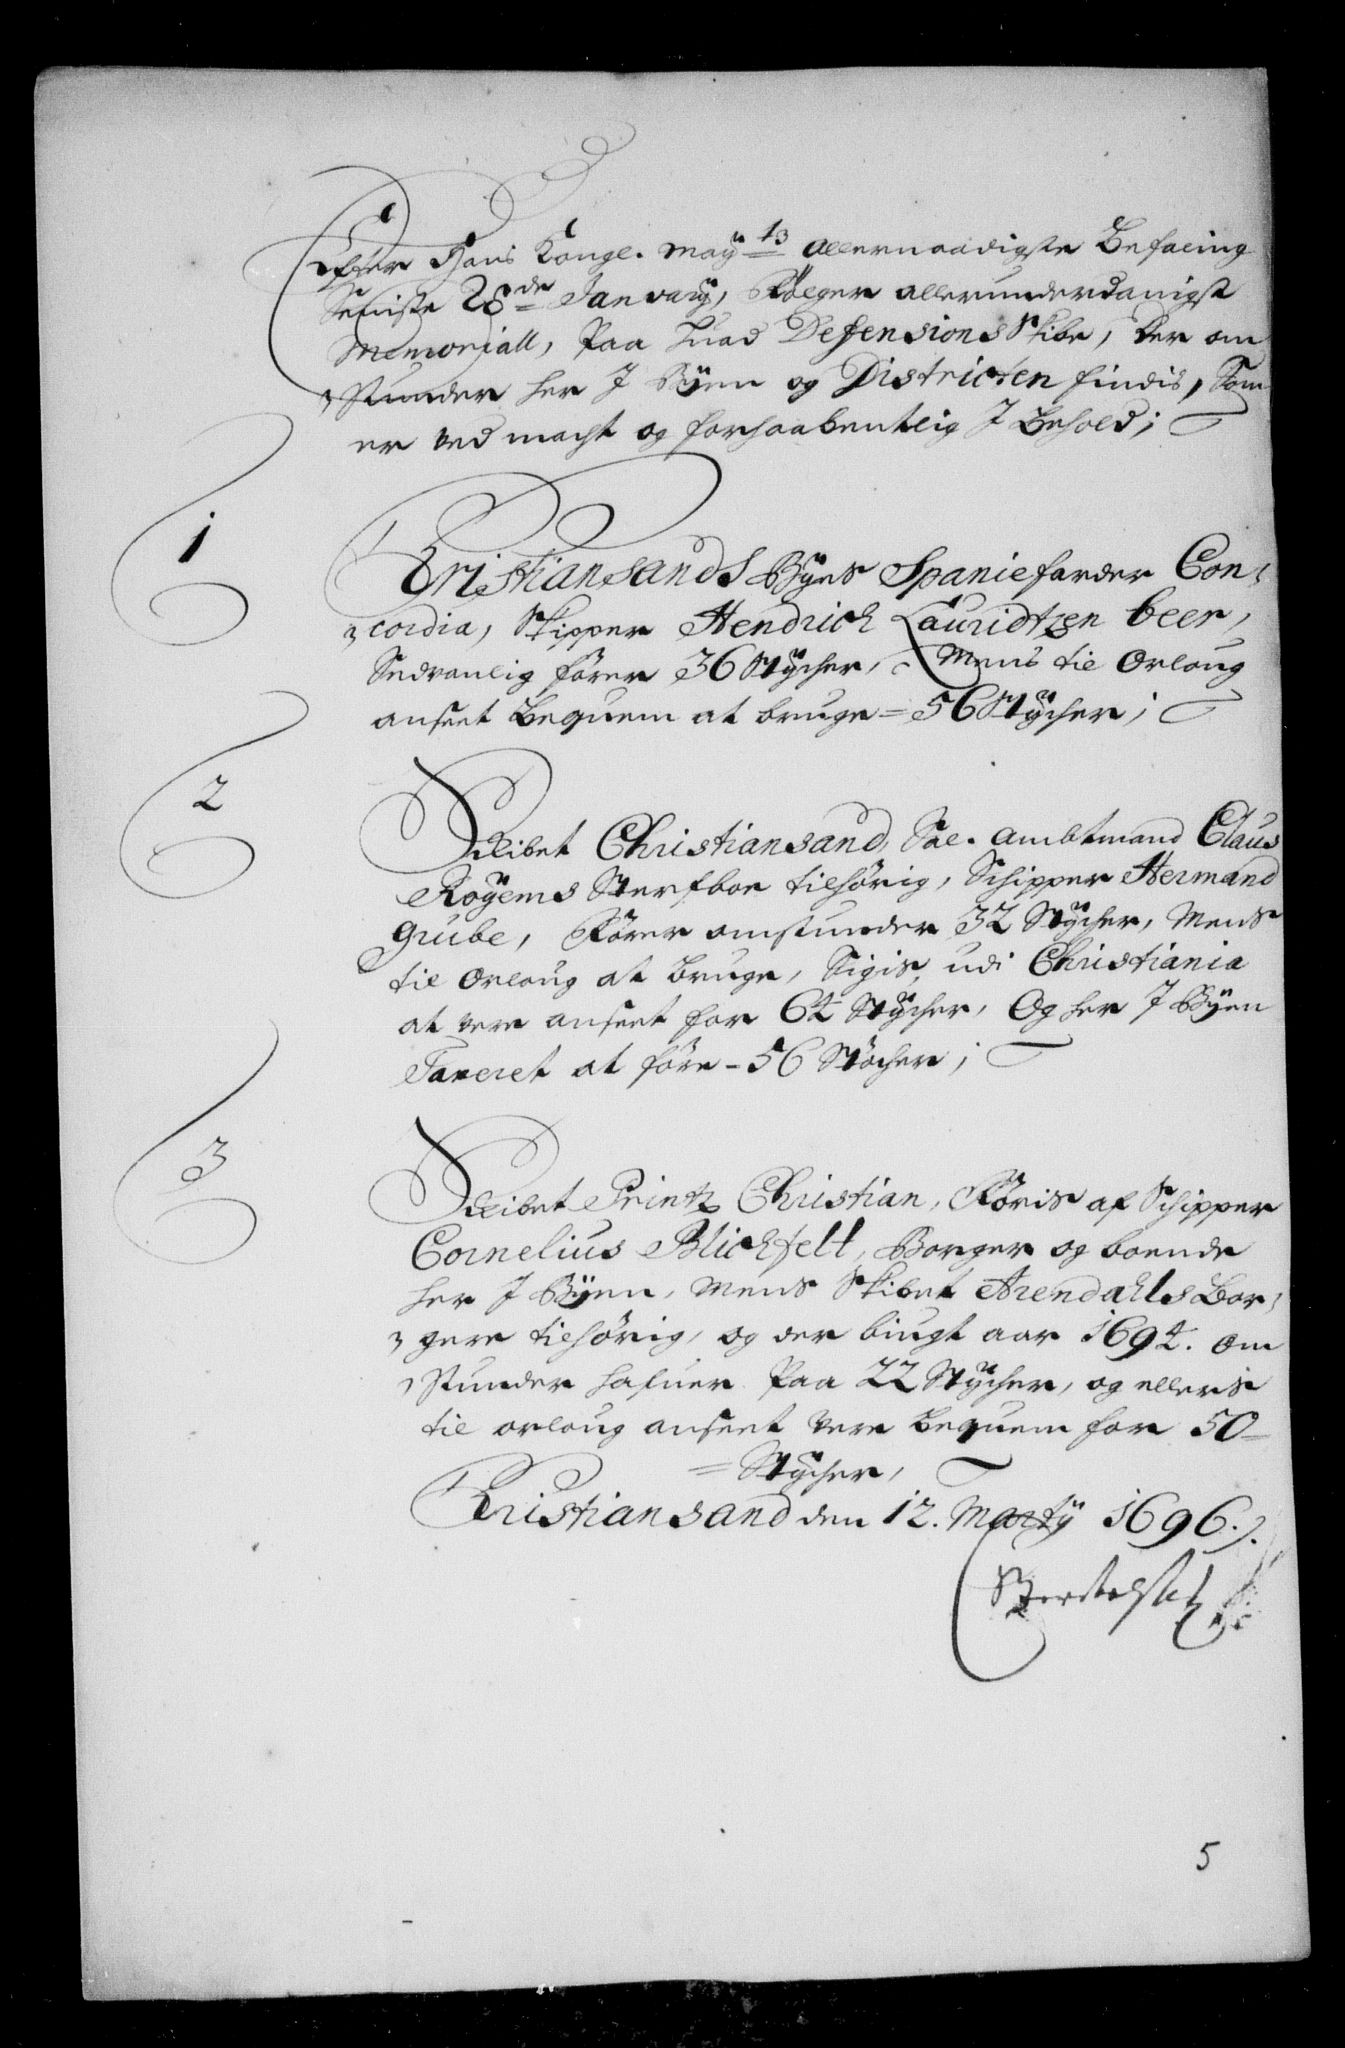 Efter Hans Kongl. May.ts Allernaadigste Befaling
Seniste 28de January, Følger allerunderdanigst
Memoriall, Paa huad Defensions Skibe, der om
stunder her J Byen og Districten findis, Som
er ved macht og forhaabentlig J behold;
1
Christiansands Byes Spaniefarder Con-
cordia, Skipper Hendrich Lauridtzen beer,
Sedvanlig fører 36 Stÿcher, Mens til Orloug
anseet bequem at bruge = 56 Stÿcher;
2
Skibet Christiansand, Sal. Ambtmand Claus
Røyems Sterfboe tilhørig, Schipper Hermand
Grube, Fører omstunder 32 Stÿcher, Mens
til Orloug at bruge, Sigis udi Christiania
at vere anseet for 64 Stÿcher, Og her J Byen
Taxeret at føre - 56 Støcher;
3
Skibet Printz Christian, Føris af Schipper
Cornelius Blichfelt, Borger og boende
her J Byen, Mens Skibet Arendahls Bor-
gere tilhørig, og der biugt aar 1694. Om
stunder hafuer Paa 22 Stÿcher, og ellers
til orloug anseet vere bequem for 50 =
= Stÿcher,
Christiansand den 12. Marty 1696.
5